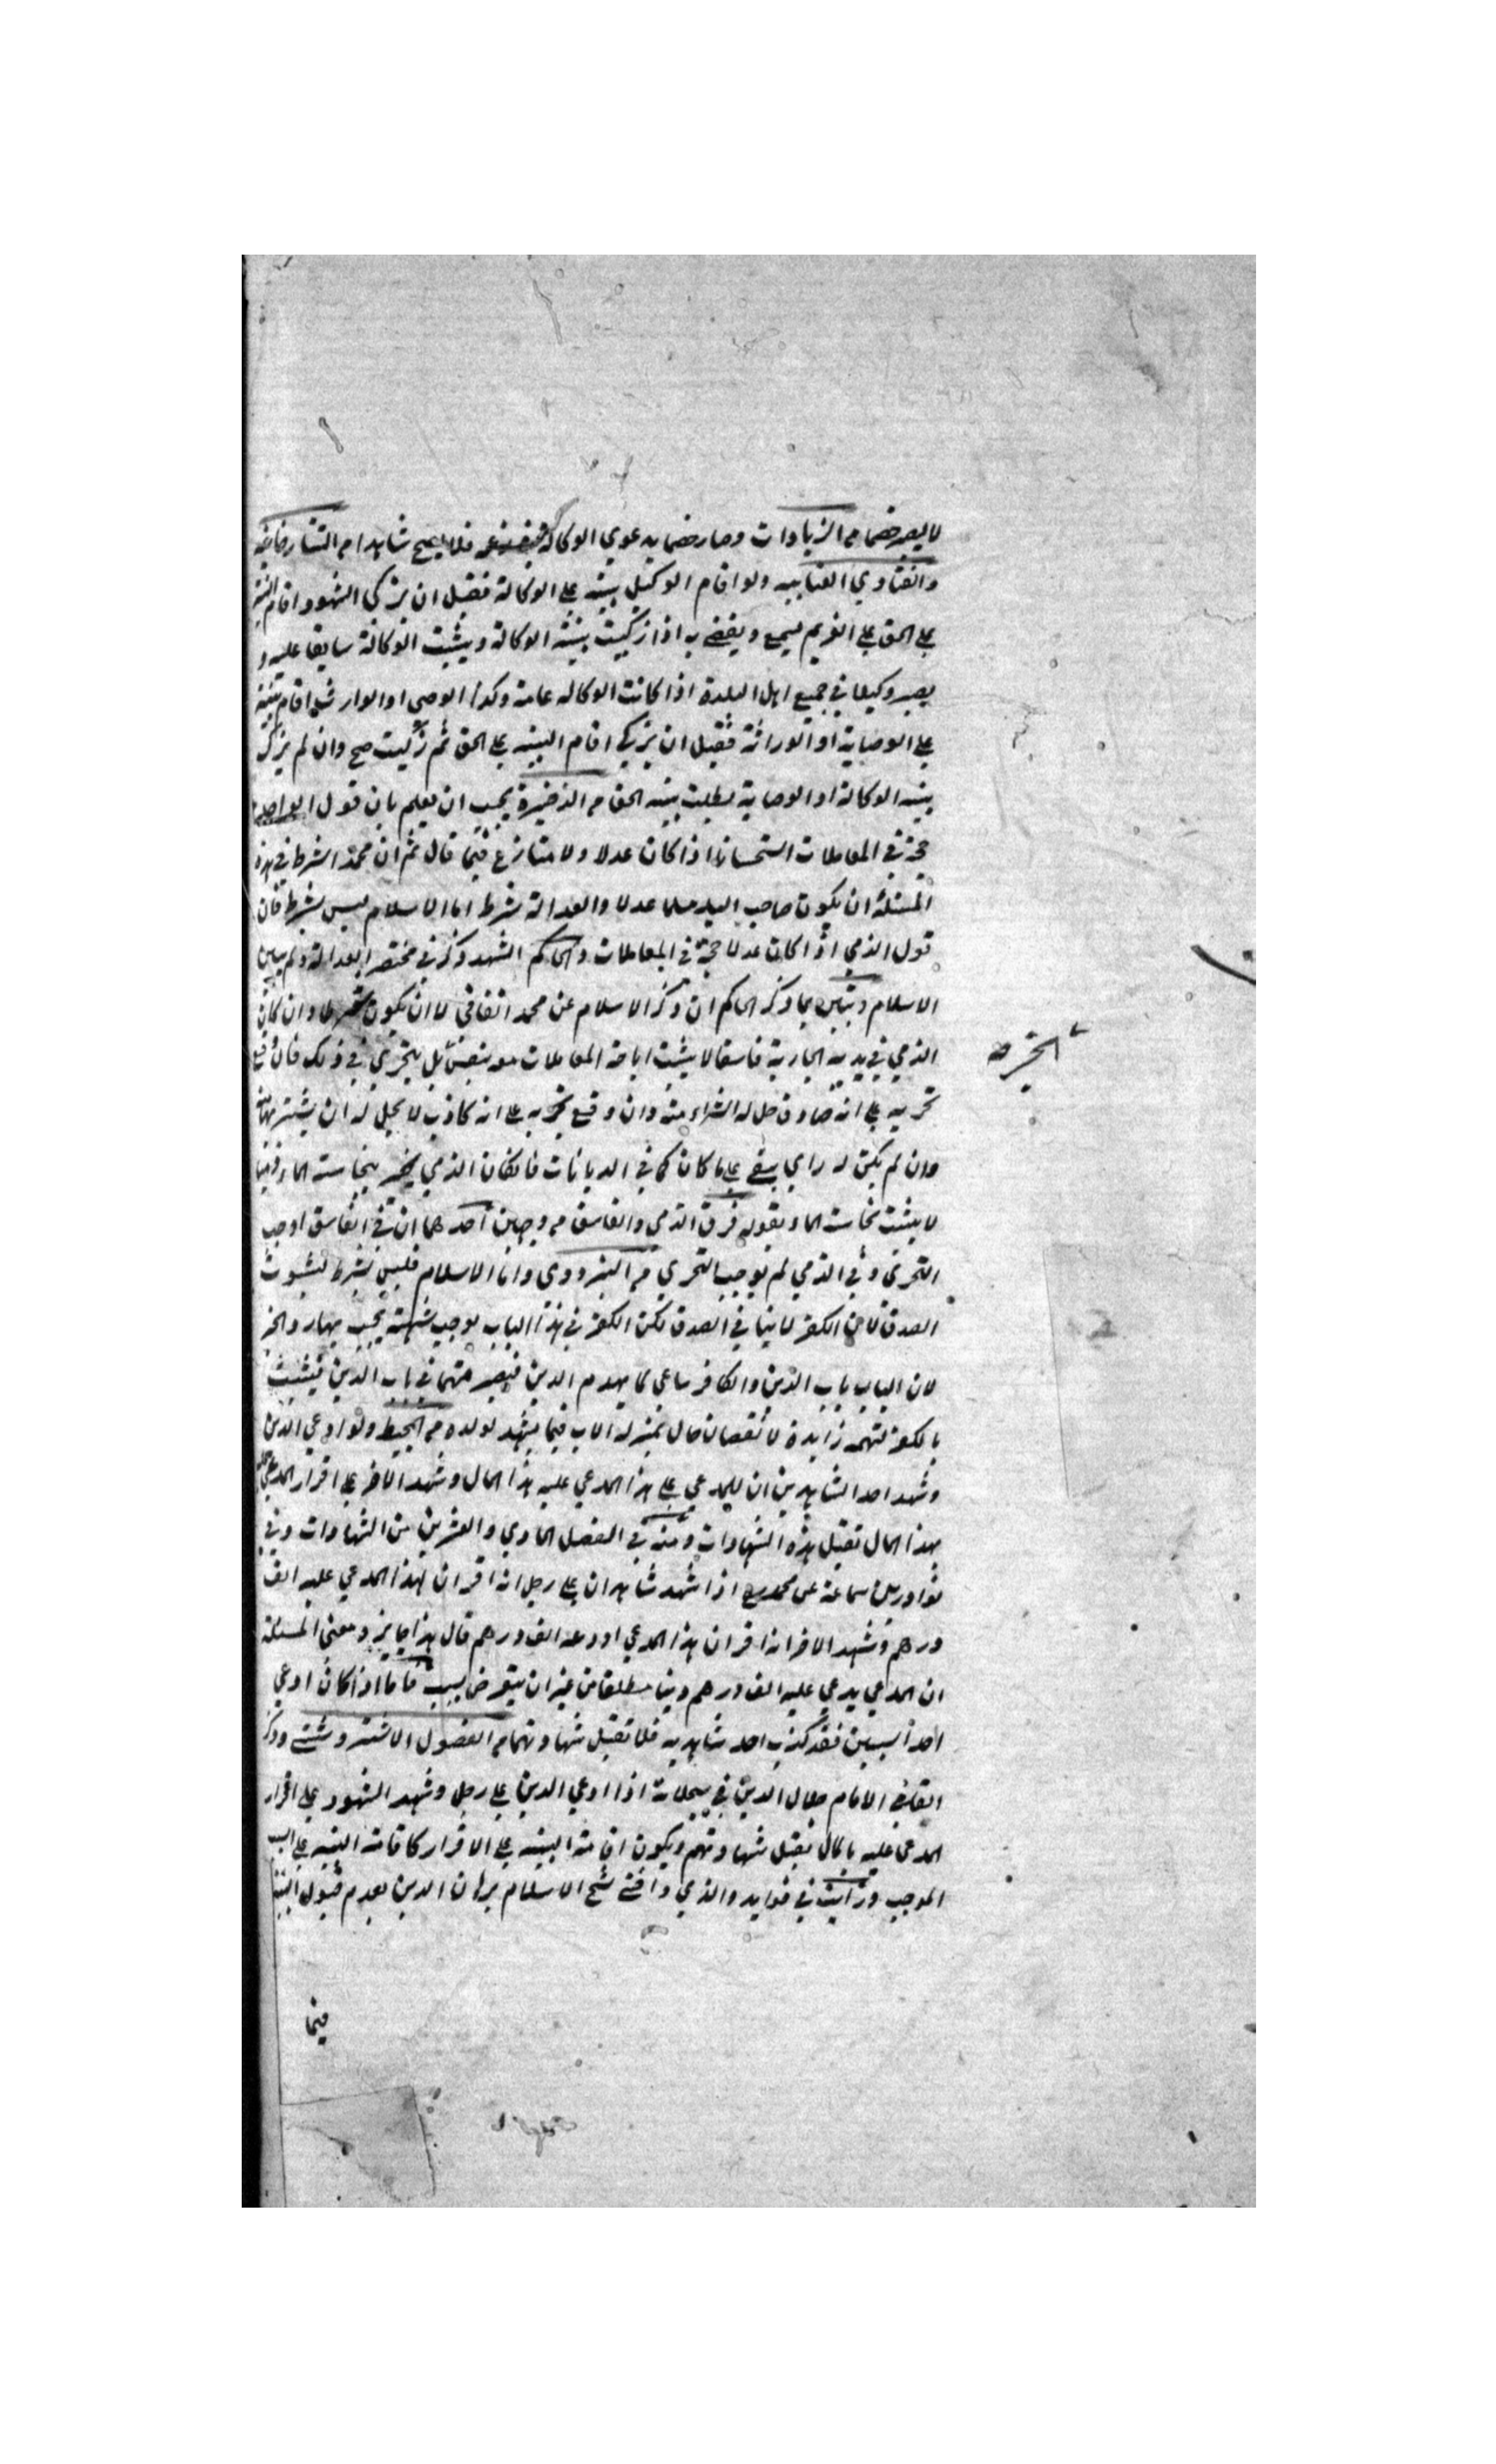 لا يصير خصما م الزيادات وصار خصما بدعوي الوكالة فلا يصح شاهدا م التتارخانيه
والفتاوي العتابيه ولو اقام الوكيل بينة علي الوكالة فقبل ان يزكي الشهود اقام البينة
علي الحق علي الغريم يسمع ويقضي به اذا زكيت بينة الوكالة ويثبت الوكالة سابقا عليه و
يصير وكيلا في جميع اهل البلدة اذا كانت الوكاله عامة وكذا الوصي او الوارث اقام بينة
علي الوصاية او الوراثة فقبل ان يزكي اقام البينه علي الحق ثم زكيت صح وان لم يزك
بينه الوكالة او الوصاية بطلت بينه الحق م الذخيرة يجب ان يعلم بان قول الواحد
حجة في المعاملات استحسانا اذا كان عدلا ولا منازع فيما قال ثم ان محمدا شرط في هذه
المسئلة ان يكون صاحب اليد مسلما عدلا والعدالة شرط اما الاسلام ليس بشرط فان
قول الذمي اذا كان عدلا حجة في المعاملات والحاكم الشهيد ذكر في مختصر العدالة ولم يبين
الاسلام وتبين بما ذكر الحاكم ان ذكر الاسلام عن محمد اتفاقي لا ان يكون شرطا وان كان
الذمي في يديه الجارية فاسقا لا يثبت اباحة المعاملات معه بنفس بل يتحري في ذلك فان وقع
تحريه علي انه صادق حل له الشراء منه وان وقع تحريه علي انه كاذب لا يحل له ان يشتريها منه
وان لم يكن له راي يبقي علي ما كان كما في الديانات فان كان الذمي يخبر بنجاسة الماء
لا يثبت نجاسة الماء بقوله فرق الذمي والفاسق م وجهين احدهما ان في الفاسق اوجب
التحري وفي الذمي لم يوجب التحري م البزدوي واما الاسلام فليس بشرط لثبوت
الصدق لان الكفر لا ينافي الصدق لكن الكفر في هذا الباب يوجب شبهة يجب بها رد الخبر
لان الباب باب الدين والكافر ساعي لما يهدم الدين فيصير متهما في باب الدين فيثبت
بالكفر تهمه زايدة لا نقصان حال بمنزلة الاب فيما يشهد لولده م المحيط ولو ادعي الدين
وشهد احد الشاهدين ان للمدعي علي هذا المدعي عليه هذا المال وشهد الاخر علي اقرار المدعي عليه
بهذا المال تقبل هذه الشهادات ومنه في الفصل الحادي والعشرين من الشهادات وفي
نوادر بن سماعة عن محمد رح اذا شهد شاهدان علي رجل انه اقر ان لهذا المدعي عليه الف
درهم وشهد الاخر انه اقر ان هذا المدعي اودعه الف درهم قال هذا جايز ومعني المسئلة
ان المدعي يدعي عليه الف درهم دينا مطلقا من غير ان يتعرض بسبب فاما اذا كان ادعي
احد السببين فقد كذب احد شاهديه فلا تقبل شهادتهما م الفصول الاشتروشني وذكر
القاضي الامام جلال الدين في سجلاته اذا ادعي الدين علي رجل وشهد الشهود علي اقرار
المدعي عليه بالمال يقبل شهادتهم ويكون اقامة البينه علي الاقرار كاقامة البينه علي السبب
الموجب ورأيت في فوايد والدي وافتي شيخ الاسلام برهان الدين بعدم قبول البينة
فيما